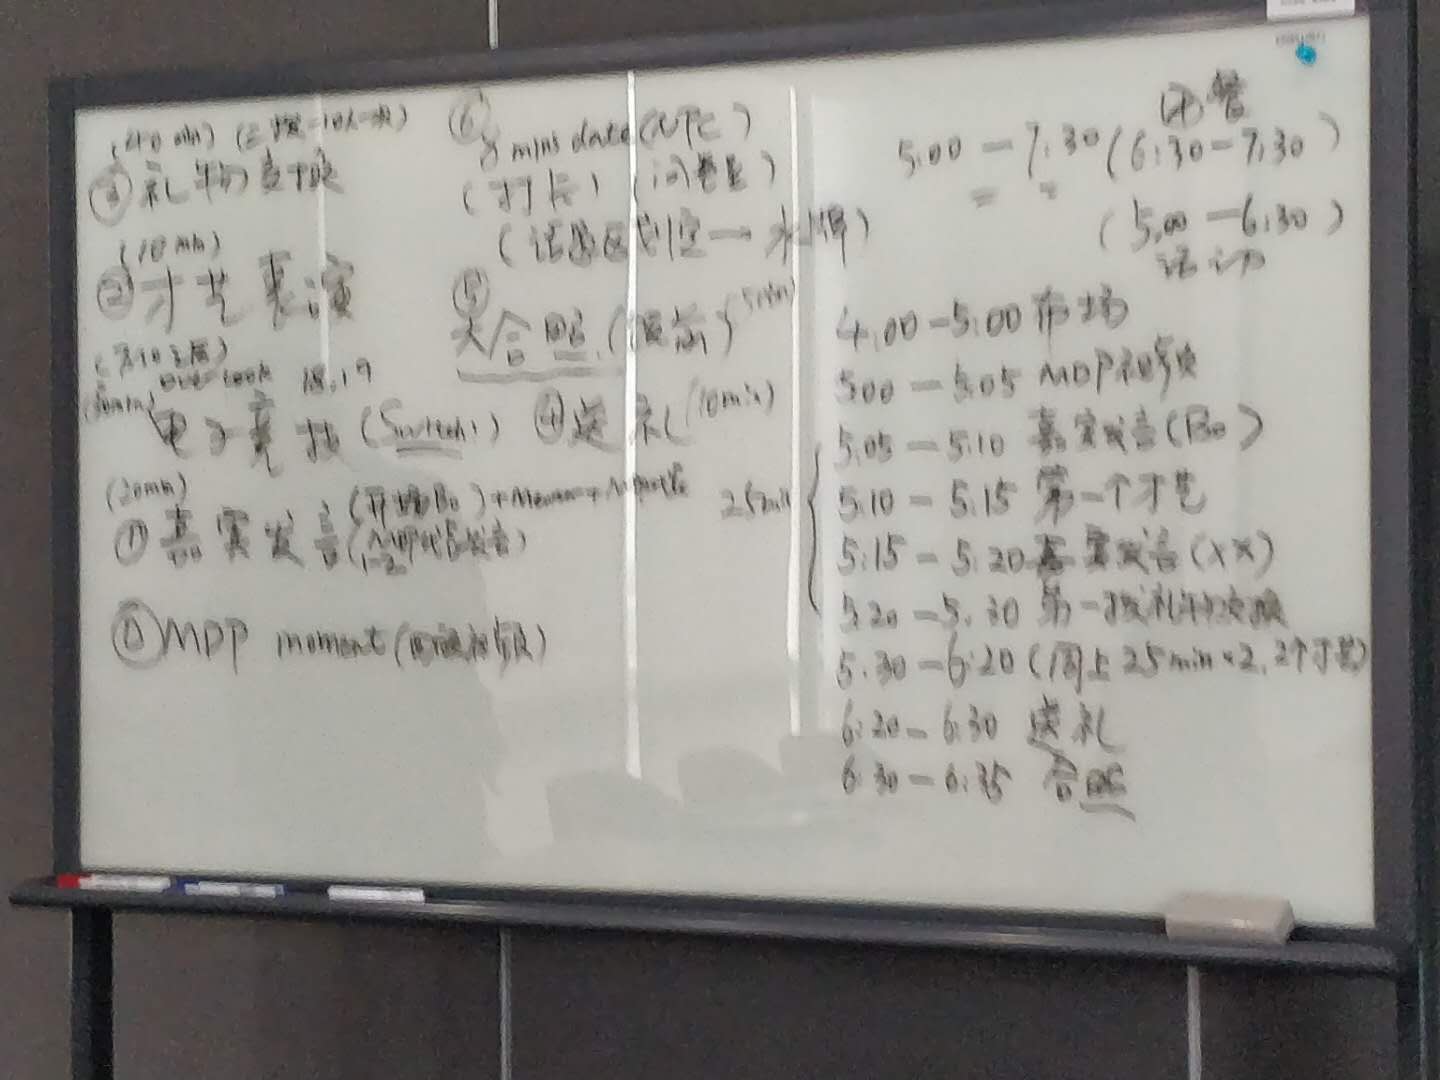 (40 min) (三拨=10人一拨)
③ 礼物交换
(10 min)
② 才艺表演
18,19
(30min)
电子竞技 (Switch)
(20min)
① 嘉宾发言 (开场Bo)
1-2
⓪ MDP moment (
⑥
8 mins date (NPC)
(打卡) (问卷星)
(话题区划定 — 水牌)
⑤
大合照 (5min)
④ 送礼 (10min)
5:00 — 7:30 (6:30 — 7:30)
(5:00 — 6:30)
活动
4:00 — 5:00 布场
5:00 — 5:05 MDP
25min
5:05 — 5:10 嘉宾发言 (Bo)
5:10 — 5:15 第一个才艺
5:15 — 5:20 嘉宾发言 (XX)
5:20 — 5:30 第一拨礼物交换
5:30 — 6:20 (同上 25min × 2, 2个才艺)
6:20 — 6:30 送礼
6:30 — 6:35 合照